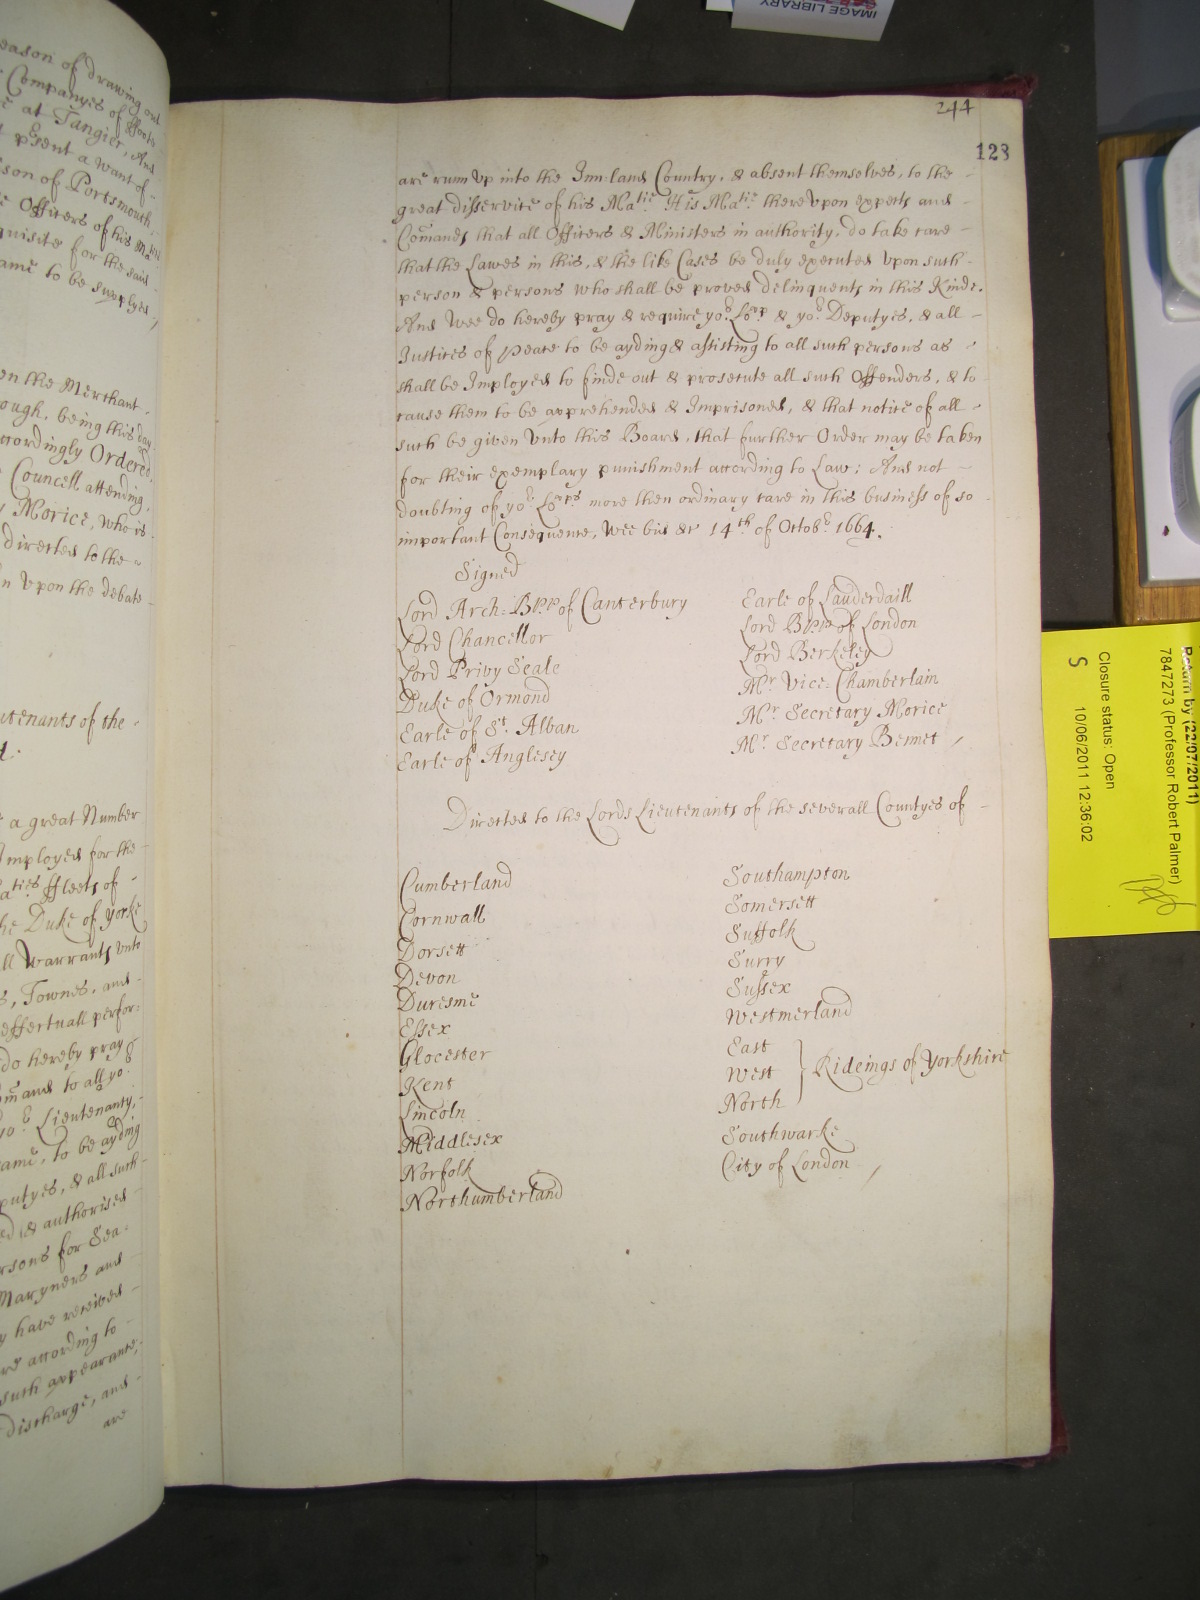 eason of drawing out
Companyes of ffoote
at Tangier, And
psent a want of
son of Portsmouth,
Officers of his Ma
quisite for the said
ame to be supplyed /
en the Merchant
ough, being this day
ccordingly Ordered
Councell attending,
Morice, who is
directed to the
n upon the debate
utenants of the
a great Number
Imployed for the
aties ffleets of
he Duke of Yorke
ll Warrants unto
s, Townes, and
effectuall perfor-
do hereby pray
mand to all yor
yor Lieutenanty,
ame, to be ayding
putyes, & all such
ed & authorised
rsons for Sea-
Maryners and
y have received
according to
such appearance,
discharge, and
are
244
123
are runn up into the Inn-land Country, & absent themselves, to the
great disservice of his Matie. His Matie thereupon expects and
Comands that all Officers & Ministers in authority, do take care
that the Lawes in this, & the like Cases be duly executed upon such
person & persons who shall be proved delinquents in this Kinde.
And Wee do hereby pray & require yor Lopp & yor Deputyes, & all
Justices of Peace to be ayding & assisting to all such persons as
shall be Imployed to finde out & prosecute all such Offenders, & to
cause them to be apprehended & Imprisoned, & that notice of all
such be given Unto this Board, that further Order may be taken
for their exemplary punishment according to Law; And not
doubting of yor Lopps more then ordinary care in this business of so
important Consequence, Wee bid &c 14th of Octobr 1664.
Signed
Lord Arch: Bpp of Canterbury
Lord Chancellor
Lord Privy Seale
Duke of Ormond
Earle of St Alban
Earle of Anglesey
Earle of Lauderdaill
Lord Bpp of London
Lord Berkeley
Mr Vice-Chamberlain
Mr Secretary Morice
Mr Secretary Bennet /
Directed to the Lords Lieutenants of the severall Countyes of
Cumberland
Cornwall
Dorsett
Devon
Duresme
Essex
Glocester
Kent
Lincoln
Middlesex
Norfolk
Northumberland
Southampton
Somersett
Suffolk
Surry
Sussex
Westmerland
East
West } Rideings of Yorkshire
North
Southwarke
City of London /
IMAGE LIBRARY
Return by (22/07/2011)
7847273 (Professor Robert Palmer)
Closure status: Open
S 10/06/2011 12:36:02